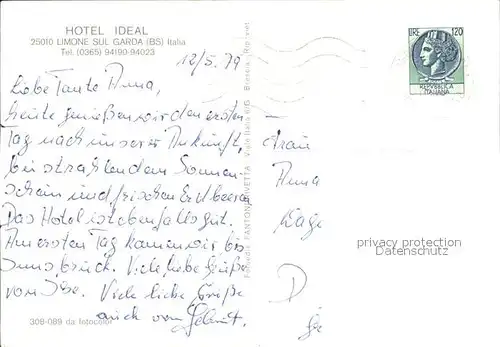 HOTEL IDEAL
25010 LIMONE SUL GARDA (BS) Italia
Tel. (0365) 94190-94023
12/5.79
LIRE 120
REPVBBLICA
ITALIANA
Liebe Tante Anna,
heute genießen wir den ersten
Tag nach unserer Ankunft,
bei strahlendem Sonnen-
schein und frischen Erdbeeren
Das Hotel ist ebenfalls gut.
Am ersten Tag kamen wir bis
Innsbruck. Viele liebe Grüße
von Ilse. Viele liebe Grüße
auch von Helmut.
308-089 da fotocolor
Viale Italia
Brescia
Frau
Anna
D
privacy protection
Datenschutz